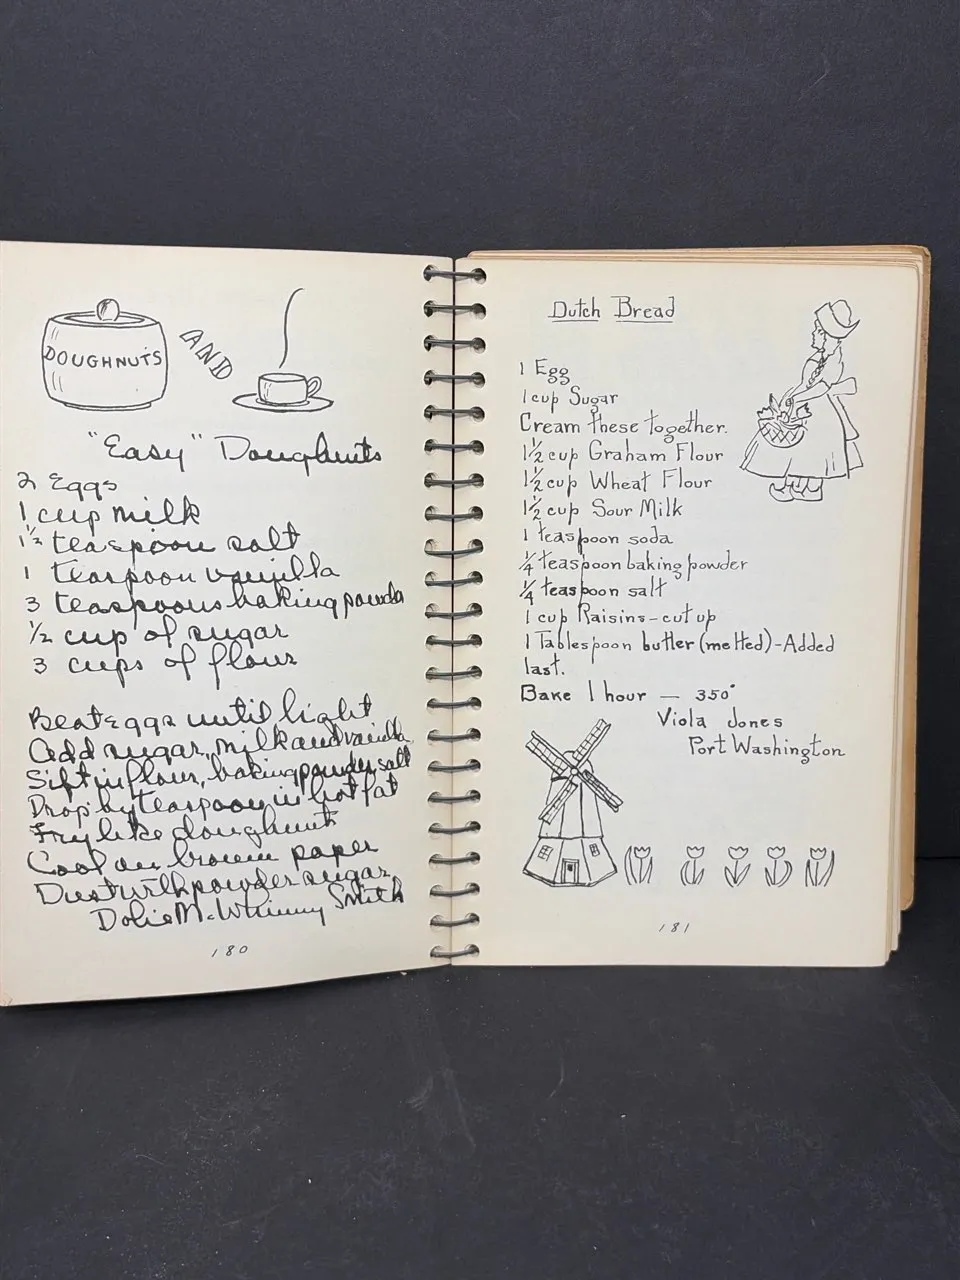 DOUGHNUTS
AND
"Easy" Doughnuts
2 Eggs
1 cup milk
1½ teaspoon salt
1 teaspoon vanilla
3 teaspoons baking powder
½ cup of sugar
3 cups of flour
Beat eggs until light
Add sugar, milk and vanilla
Sift in flour, baking powder, salt
Drop by teaspoon in hot fat
Fry like doughnuts
Cool on brown paper
Dust with powder sugar
Dolie McWhinny Smith
180
Dutch Bread
1 Egg
1 cup Sugar
Cream these together.
1½ cup Graham Flour
1½ cup Wheat Flour
1½ cup Sour Milk
1 teaspoon soda
¼ teaspoon baking powder
¼ teaspoon salt
1 cup Raisins - cut up
1 Tablespoon butter (melted) - Added
last.
Bake 1 hour — 350°
Viola Jones
Port Washington
181